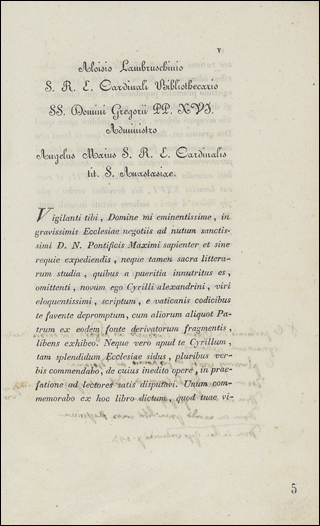 v
Aloisio Lambruschinio
S. R. E. Cardinali Bibliothecario
SS. Domini Gregorii PP. XVI.
Administro
Angelus Maius S. R. E. Cardinalis
tit. S. Anastasiae.
Vigilanti tibi, Domine mi eminentissime, in
gravissimis Ecclesiae negotiis ad nutum sanctis-
simi D. N. Pontificis Maximi sapienter et sine
requie expediendis, neque tamen sacra littera-
rum studia, quibus a pueritia innutritus es,
omittenti, novum ego Cyrilli alexandrini, viri
eloquentissimi, scriptum, e vaticanis codicibus
te favente depromptum, cum aliorum aliquot Pa-
trum ex eodem fonte derivatorum fragmentis,
libens exhibeo. Neque vero apud te Cyrillum,
tam splendidum Ecclesiae sidus, pluribus ver-
bis commendabo, de cuius inedito opere, in prae-
fatione ad lectores satis disputavi. Unum com-
memorabo ex hoc libro dictum, quod tuae vi-
5